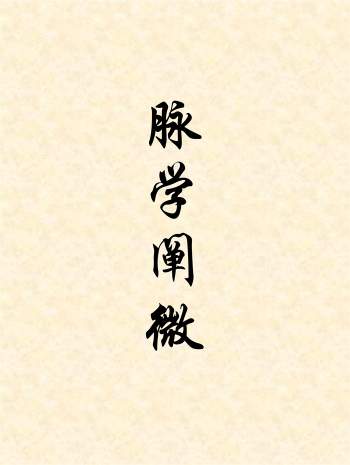 脉学阐微